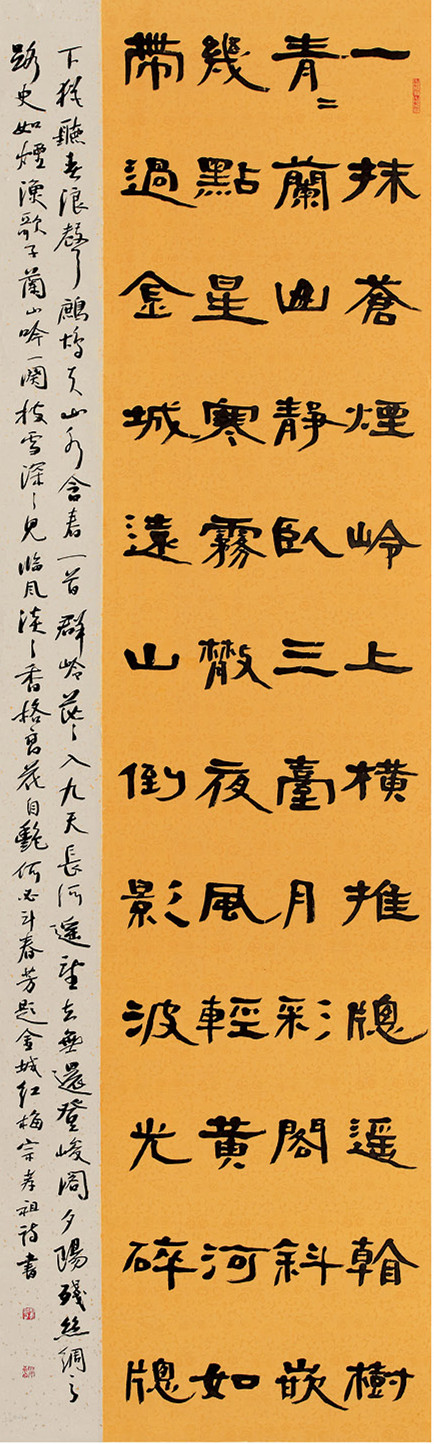 一抹蒼煙岭上橫推牕遥看樹
青〻蘭山靜臥三臺月彩閣斜嵌
幾點星寒霧散夜風輕黄河如
帶過金城遠山倒影波光碎牕
下猶聽春浪聲鷓鴣天山水含春一首群岭茫〻入九天長河遥望去無還登峻閣夕陽殘絲綢之
路史如煙漁歌子蘭山吟一闋枝雪深〻見臨風淡〻香格高花自艷何必斗春芳題金城红梅宗孝祖詩書